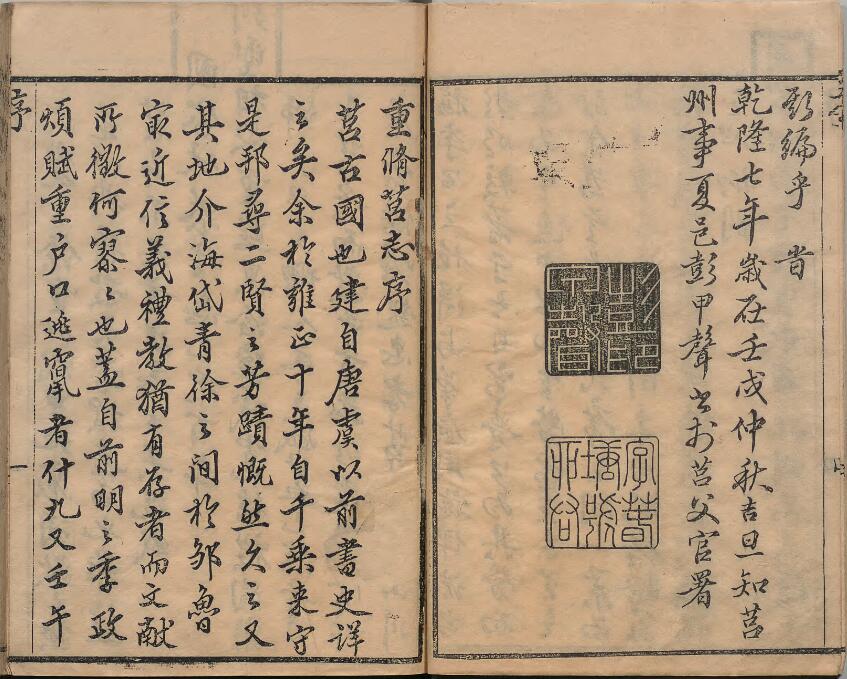 斯編乎旹
乾隆七年歲在壬戌仲秋吉旦知莒
州事夏邑彭甲聲書於莒父官署
重脩莒志序
莒古國也建自唐虞以前書史詳
之矣余於雍正十年自千乘来守
是邦尋二賢之芳蹟慨然久之又
其地介海岱青徐之間於鄒魯
冣近信義禮教猶有存者而文献
所徵何寥〻也蓋自前明之季政
煩賦重户口逃竄者什九又壬午
序
一